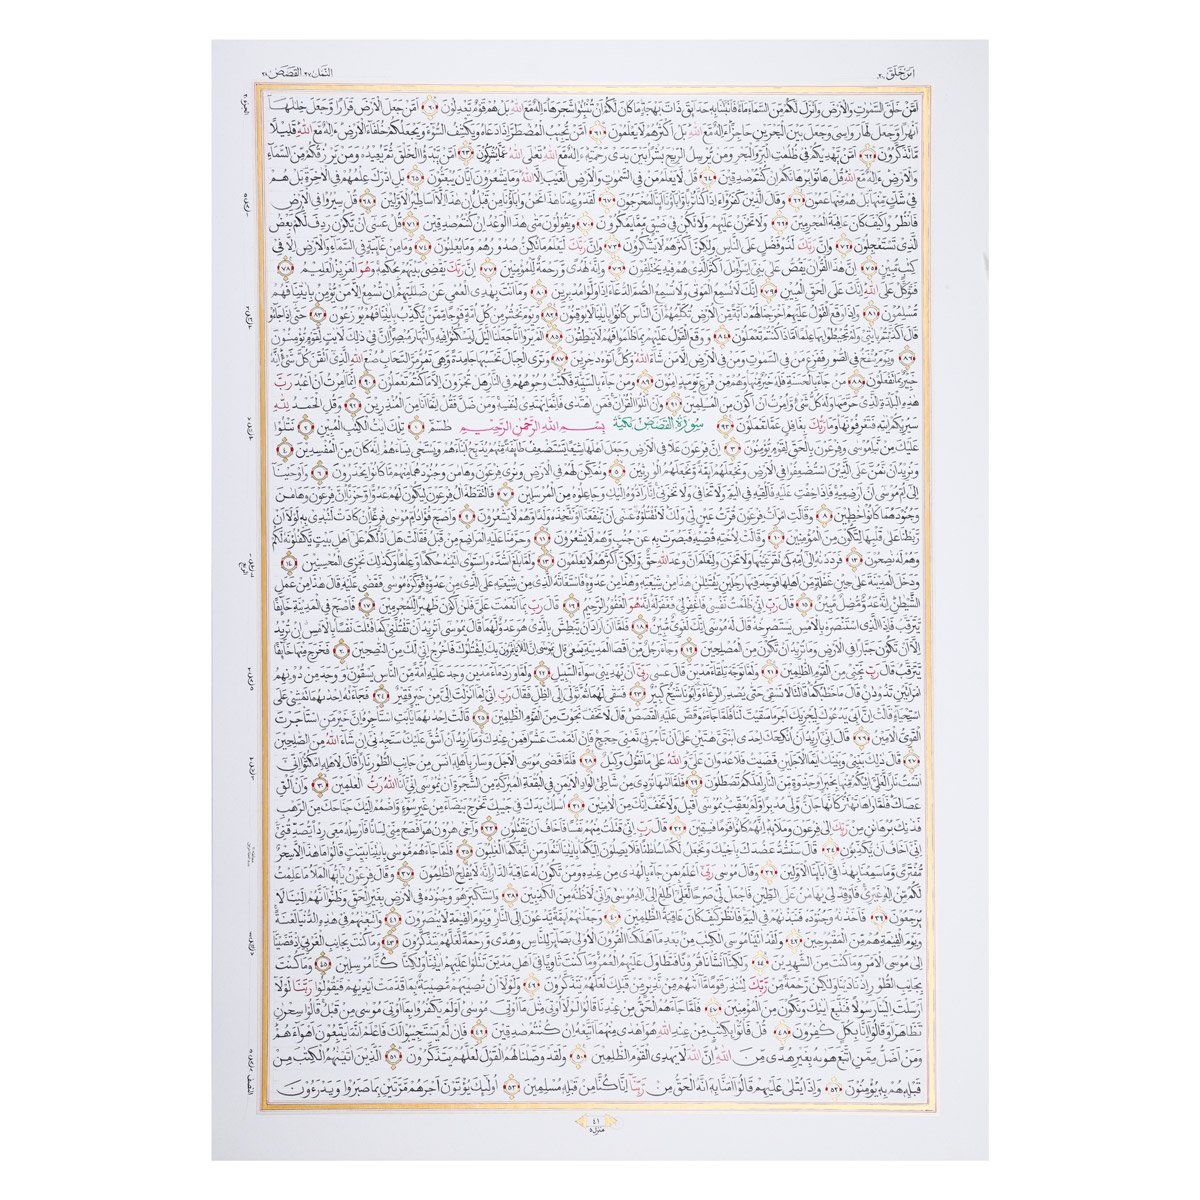 النمل ٢٧ القصص ٢٨
امن خلق ٢٠
امن خلق السموت والارض وانزل لكم من السماء ماء فانبتنا به حدايق ذات بهجة ما كان لكم ان تنبتوا شجرها ءاله مع الله بل هم قوم يعدلون ٦٠ امن جعل الارض قرارا وجعل خللها
انهرا وجعل لها رواسي وجعل بين البحرين حاجزا ءاله مع الله بل اكثرهم لا يعلمون ٦١ امن يجيب المضطر اذا دعاه ويكشف السوء ويجعلكم خلفاء الارض ءاله مع الله قليلا
ما تذكرون ٦٢ امن يهديكم في ظلمت البر والبحر ومن يرسل الريح بشرا بين يدي رحمته ءاله مع الله تعلى الله عما يشركون ٦٣ امن يبدؤا الخلق ثم يعيده ومن يرزقكم من السماء
والارض ءاله مع الله قل هاتوا برهانكم ان كنتم صدقين ٦٤ قل لا يعلم من في السموت والارض الغيب الا الله وما يشعرون ايان يبعثون ٦٥ بل ادرك علمهم في الاخرة بل هم
في شك منها بل هم منها عمون ٦٦ وقال الذين كفروا ءاذا كنا تربا وءاباؤنا ائنا لمخرجون ٦٧ لقد وعدنا هذا نحن وءاباؤنا من قبل ان هذا الا اسطير الاولين ٦٨ قل سيروا في الارض
فانظروا كيف كان عاقبة المجرمين ٦٩ ولا تحزن عليهم ولا تكن في ضيق مما يمكرون ٧٠ ويقولون متى هذا الوعد ان كنتم صدقين ٧١ قل عسى ان يكون ردف لكم بعض
الذي تستعجلون ٧٢ وان ربك لذو فضل على الناس ولكن اكثرهم لا يشكرون ٧٣ وان ربك ليعلم ما تكن صدورهم وما يعلنون ٧٤ وما من غايبة في السماء والارض الا في
كتب مبين ٧٥ ان هذا القران يقص على بني اسرايل اكثر الذي هم فيه يختلفون ٧٦ وانه لهدى ورحمة للمؤمنين ٧٧ ان ربك يقضي بينهم بحكمه وهو العزيز العليم ٧٨
فتوكل على الله انك على الحق المبين ٧٩ انك لا تسمع الموتى ولا تسمع الصم الدعاء اذا ولوا مدبرين ٨٠ وما انت بهدي العمي عن ضللتهم ان تسمع الا من يؤمن بايتنا فهم
مسلمون ٨١ واذا وقع القول عليهم اخرجنا لهم دابة من الارض تكلمهم ان الناس كانوا بايتنا لا يوقنون ٨٢ ويوم نحشر من كل امة فوجا ممن يكذب بايتنا فهم يوزعون ٨٣ حتى اذا جاءو
قال اكذبتم بايتي ولم تحيطوا بها علما اماذا كنتم تعملون ٨٤ ووقع القول عليهم بما ظلموا فهم لا ينطقون ٨٥ الم يروا انا جعلنا اليل ليسكنوا فيه والنهار مبصرا ان في ذلك لايت لقوم يؤمنون
٨٦ ويوم ينفخ في الصور ففزع من في السموت ومن في الارض الا من شاء الله وكل اتوه دخرين ٨٧ وترى الجبال تحسبها جامدة وهي تمر مر السحاب صنع الله الذي اتقن كل شيء انه
خبير بما تفعلون ٨٨ من جاء بالحسنة فله خير منها وهم من فزع يومئذ امنون ٨٩ ومن جاء بالسيئة فكبت وجوههم في النار هل تجزون الا ما كنتم تعملون ٩٠ انما امرت ان اعبد رب
هذه البلدة الذي حرمها وله كل شيء وامرت ان اكون من المسلمين ٩١ وان اتلوا القران فمن اهتدى فانما يهتدي لنفسه ومن ضل فقل انما انا من المنذرين ٩٢ وقل الحمد لله
سيريكم ايته فتعرفونها وما ربك بغافل عما تعملون ٩٣ سورة القصص مكية بسم الله الرحمن الرحيم طسم ١ تلك ايت الكتب المبين ٢ نتلوا
عليك من نبا موسى وفرعون بالحق لقوم يؤمنون ٣ ان فرعون علا في الارض وجعل اهلها شيعا يستضعف طايفة منهم يذبح ابناءهم ويستحي نساءهم انه كان من المفسدين ٤
ونريد ان نمن على الذين استضعفوا في الارض ونجعلهم ايمة ونجعلهم الورثين ٥ ونمكن لهم في الارض ونري فرعون وهامن وجنودهما منهم ما كانوا يحذرون ٦ واوحينا
الى ام موسى ان ارضعيه فاذا خفت عليه فالقيه في اليم ولا تخافي ولا تحزني انا رادوه اليك وجاعلوه من المرسلين ٧ فالتقطه ال فرعون ليكون لهم عدوا وحزنا ان فرعون وهامن
وجنودهما كانوا خطين ٨ وقالت امرات فرعون قرت عين لي ولك لا تقتلوه عسى ان ينفعنا او نتخذه ولدا وهم لا يشعرون ٩ واصبح فؤاد ام موسى فرغا ان كادت لتبدي به لولا ان
ربطنا على قلبها لتكون من المؤمنين ١٠ وقالت لاخته قصيه فبصرت به عن جنب وهم لا يشعرون ١١ وحرمنا عليه المراضع من قبل فقالت هل ادلكم على اهل بيت يكفلونه لكم
وهم له نصحون ١٢ فرددنه الى امه كي تقر عينها ولا تحزن ولتعلم ان وعد الله حق ولكن اكثرهم لا يعلمون ١٣ ولما بلغ اشده واستوى اتينه حكما وعلما وكذلك نجزي المحسنين ١٤
ودخل المدينة على حين غفلة من اهلها فوجد فيها رجلين يقتتلان هذا من شيعته وهذا من عدوه فاستغثه الذي من شيعته على الذي من عدوه فوكزه موسى فقضى عليه قال هذا من عمل
الشيطن انه عدو مضل مبين ١٥ قال رب اني ظلمت نفسي فاغفر لي فغفر له انه هو الغفور الرحيم ١٦ قال رب بما انعمت علي فلن اكون ظهيرا للمجرمين ١٧ فاصبح في المدينة خايفا
يترقب فاذا الذي استنصره بالامس يستصرخه قال له موسى انك لغوي مبين ١٨ فلما ان اراد ان يبطش بالذي هو عدو لهما قال يموسى اتريد ان تقتلني كما قتلت نفسا بالامس ان تريد
الا ان تكون جبارا في الارض وما تريد ان تكون من المصلحين ١٩ وجاء رجل من اقصا المدينة يسعى قال يموسى ان الملا ياتمرون بك ليقتلوك فاخرج اني لك من النصحين ٢٠ فخرج منها خايفا
يترقب قال رب نجني من القوم الظلمين ٢١ ولما توجه تلقاء مدين قال عسى ربي ان يهديني سواء السبيل ٢٢ ولما ورد ماء مدين وجد عليه امة من الناس يسقون ووجد من دونهم
امراتين تذودان قال ما خطبكما قالتا لا نسقي حتى يصدر الرعاء وابونا شيخ كبير ٢٣ فسقى لهما ثم تولى الى الظل فقال رب اني لما انزلت الي من خير فقير ٢٤ فجاءته احدىهما تمشي على
استحياء قالت ان ابي يدعوك ليجزيك اجر ما سقيت لنا فلما جاءه وقص عليه القصص قال لا تخف نجوت من القوم الظلمين ٢٥ قالت احدىهما يابت استاجره ان خير من استاجرت
القوي الامين ٢٦ قال اني اريد ان انكحك احدى ابنتي هتين على ان تاجرني ثمني حجج فان اتممت عشرا فمن عندك وما اريد ان اشق عليك ستجدني ان شاء الله من الصلحين
٢٧ قال ذلك بيني وبينك ايما الاجلين قضيت فلا عدون علي والله على ما نقول وكيل ٢٨ فلما قضى موسى الاجل وسار باهله انس من جانب الطور نارا قال لاهله امكثوا اني
انست نارا لعلي اتيكم منها بخبر او جذوة من النار لعلكم تصطلون ٢٩ فلما اتىها نودي من شاطئ الواد الايمن في البقعة المبركة من الشجرة ان يموسى اني انا الله رب العلمين ٣٠ وان الق
عصاك فلما راها تهتز كانها جان ولى مدبرا ولم يعقب يموسى اقبل ولا تخف انك من الامنين ٣١ اسلك يدك في جيبك تخرج بيضاء من غير سوء واضمم اليك جناحك من الرهب
فذنك برهانن من ربك الى فرعون وملايه انهم كانوا قوما فسقين ٣٢ قال رب اني قتلت منهم نفسا فاخاف ان يقتلون ٣٣ واخي هرون هو افصح مني لسانا فارسله معي ردا يصدقني
اني اخاف ان يكذبون ٣٤ قال سنشد عضدك باخيك ونجعل لكما سلطنا فلا يصلون اليكما بايتنا انتما ومن اتبعكما الغلبون ٣٥ فلما جاءهم موسى بايتنا بينت قالوا ما هذا الا سحر
مفترى وما سمعنا بهذا في ابائنا الاولين ٣٦ وقال موسى ربي اعلم بمن جاء بالهدى من عنده ومن تكون له عاقبة الدار انه لا يفلح الظلمون ٣٧ وقال فرعون يايها الملا ما علمت
لكم من اله غيري فاوقد لي يهامن على الطين فاجعل لي صرحا لعلي اطلع الى اله موسى واني لاظنه من الكذبين ٣٨ واستكبر هو وجنوده في الارض بغير الحق وظنوا انهم الينا لا
يرجعون ٣٩ فاخذنه وجنوده فنبذنهم في اليم فانظر كيف كان عاقبة الظلمين ٤٠ وجعلنهم ايمة يدعون الى النار ويوم القيمة لا ينصرون ٤١ واتبعنهم في هذه الدنيا لعنة
ويوم القيمة هم من المقبوحين ٤٢ ولقد اتينا موسى الكتب من بعد ما اهلكنا القرون الاولى بصائر للناس وهدى ورحمة لعلهم يتذكرون ٤٣ وما كنت بجانب الغربي اذ قضينا
الى موسى الامر وما كنت من الشهدين ٤٤ ولكنا انشانا قرونا فتطاول عليهم العمر وما كنت ثاويا في اهل مدين تتلوا عليهم ايتنا ولكنا كنا مرسلين ٤٥ وما كنت
بجانب الطور اذ نادينا ولكن رحمة من ربك لتنذر قوما ما اتىهم من نذير من قبلك لعلهم يتذكرون ٤٦ ولولا ان تصيبهم مصيبة بما قدمت ايديهم فيقولوا ربنا لولا
ارسلت الينا رسولا فنتبع ايتك ونكون من المؤمنين ٤٧ فلما جاءهم الحق من عندنا قالوا لولا اوتي مثل ما اوتي موسى اولم يكفروا بما اوتي موسى من قبل قالوا سحرن
تظاهرا وقالوا انا بكل كفرون ٤٨ قل فاتوا بكتب من عند الله هو اهدى منهما اتبعه ان كنتم صدقين ٤٩ فان لم يستجيبوا لك فاعلم انما يتبعون اهواءهم
ومن اضل ممن اتبع هوىه بغير هدى من الله ان الله لا يهدي القوم الظلمين ٥٠ ولقد وصلنا لهم القول لعلهم يتذكرون ٥١ الذين اتينهم الكتب من
قبله هم به يؤمنون ٥٢ واذا يتلى عليهم قالوا امنا به انه الحق من ربنا انا كنا من قبله مسلمين ٥٣ اوليك يؤتون اجرهم مرتين بما صبروا ويدرءون
٤١
منزل ٥